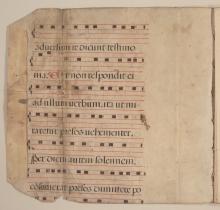 adversum te dicunt testimo
nia? Et non respondit ei
ad illum verbum, ita ut mi
raretur preses vehementer.
Per diem autem solennem,
consueverat preses dimittere po